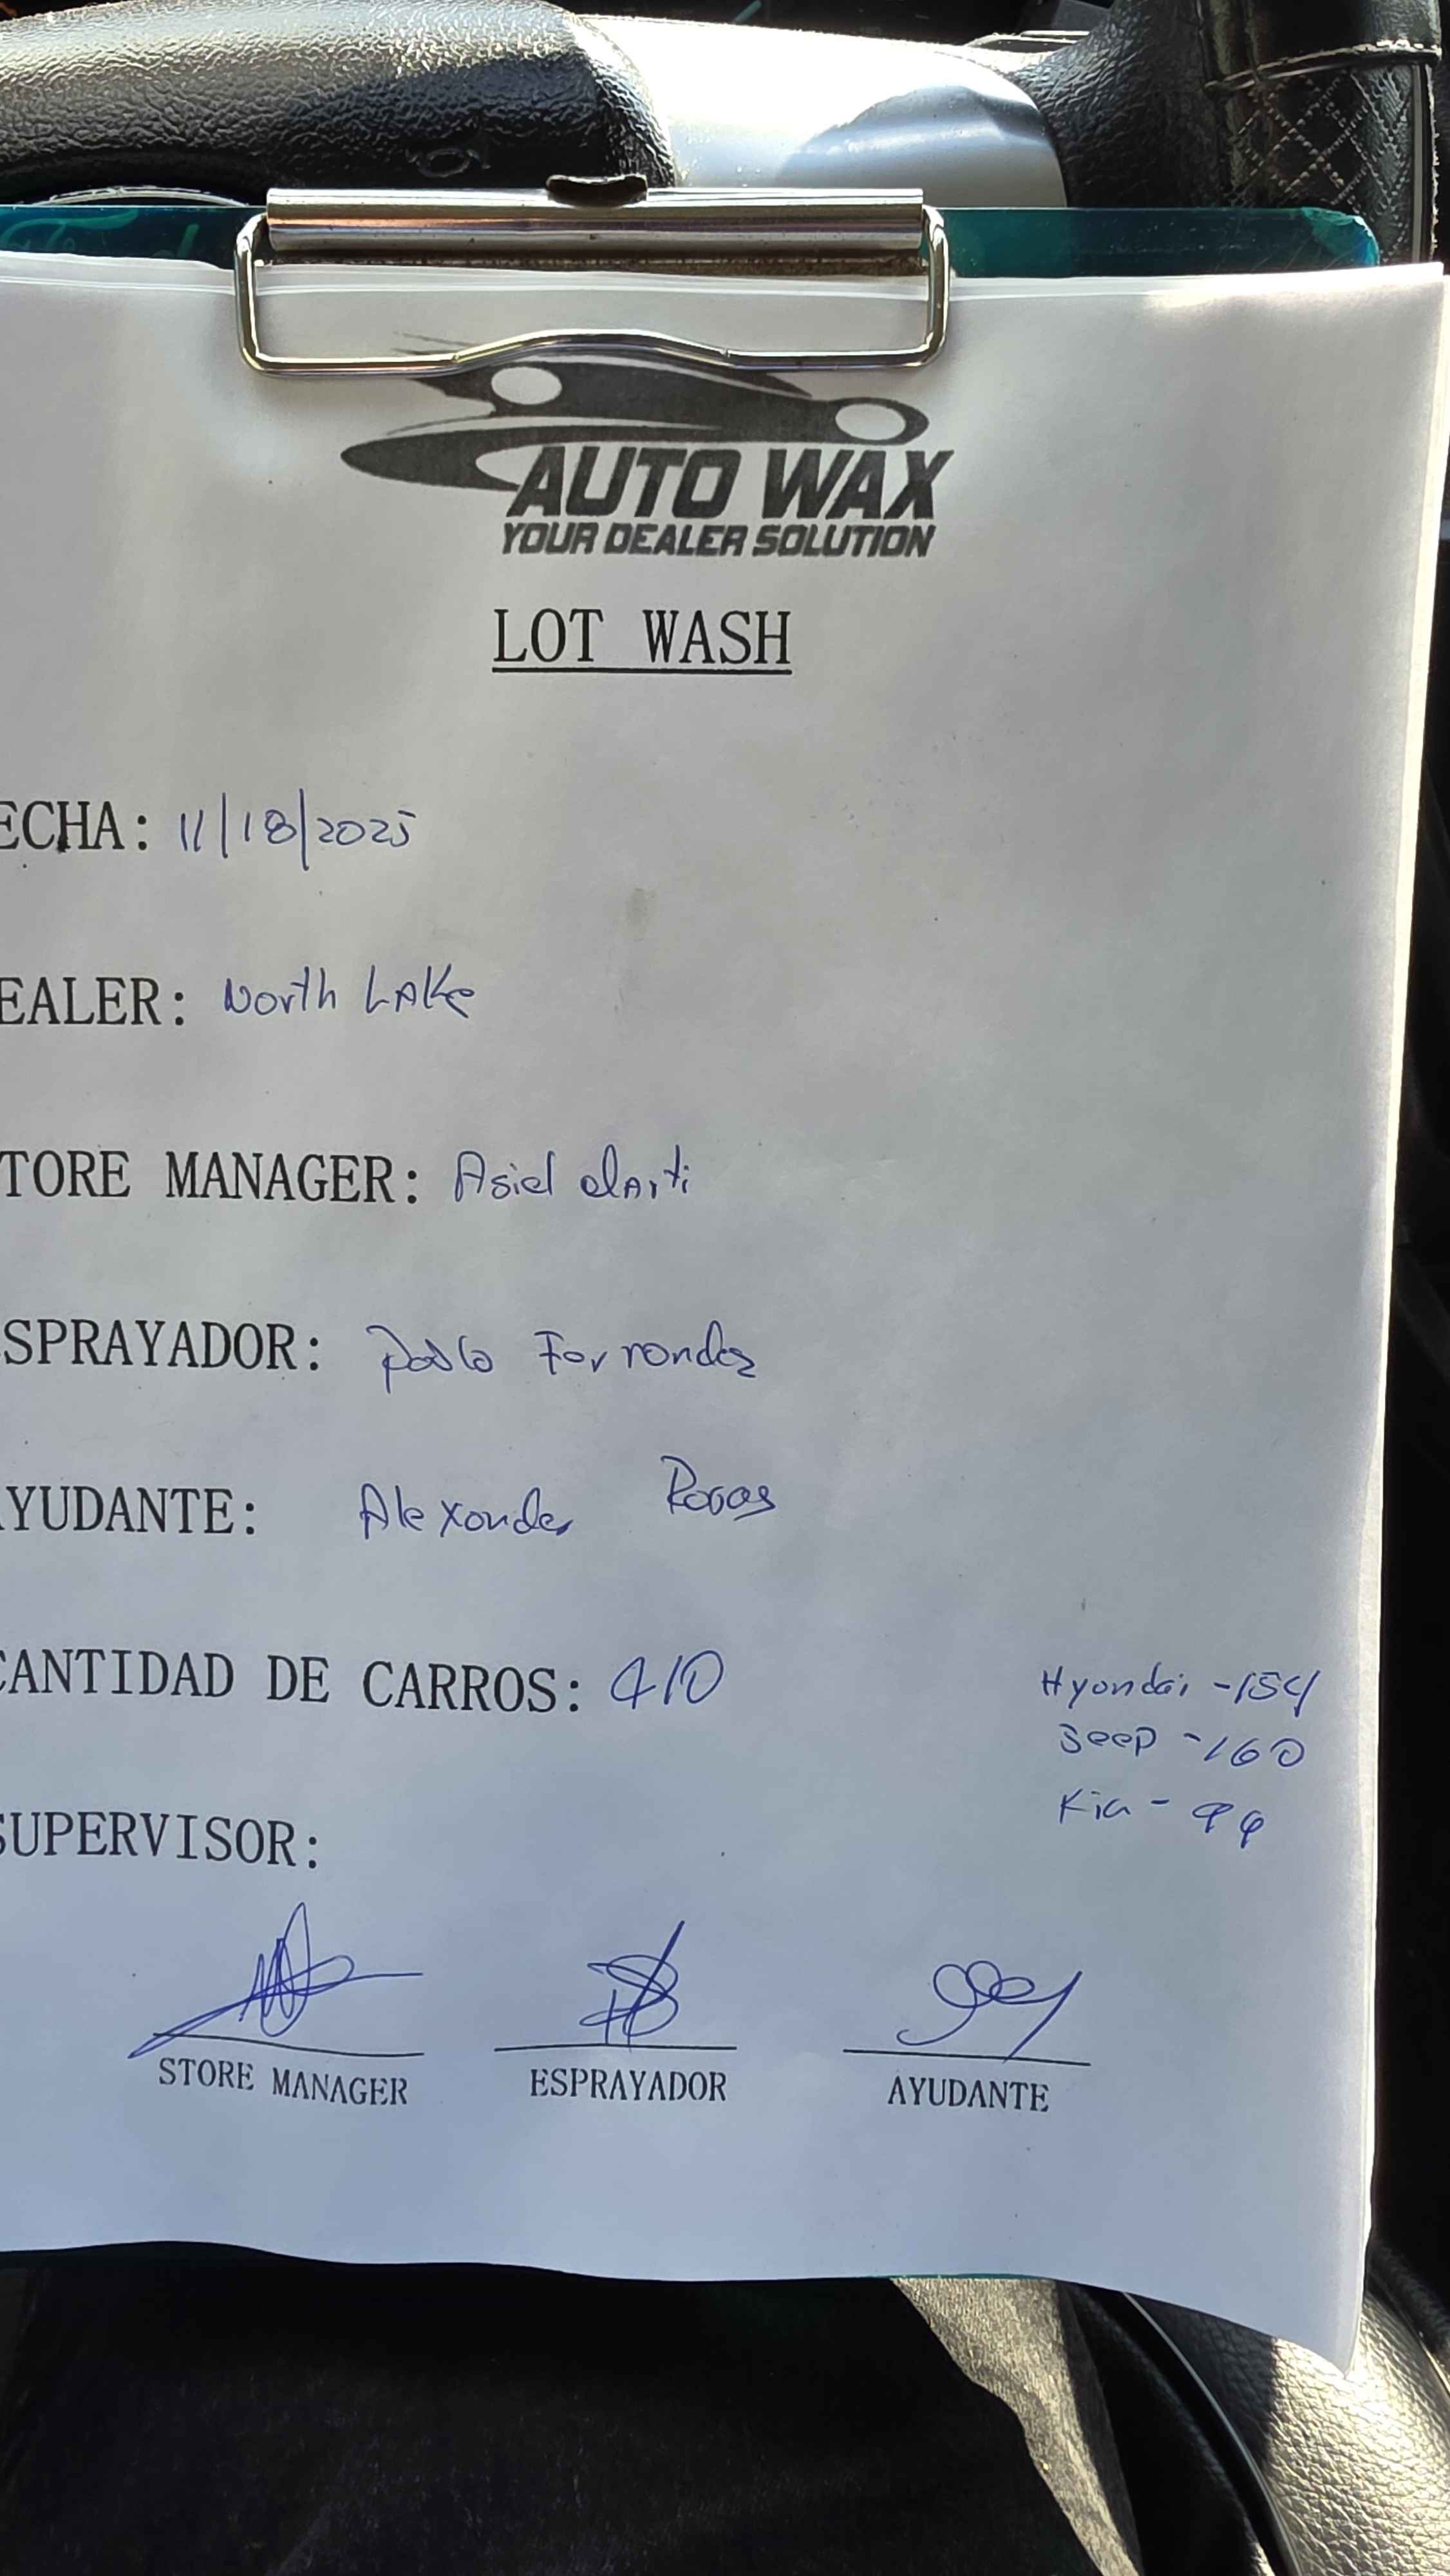 AUTO WAX
YOUR DEALER SOLUTION
LOT WASH
ECHA: 11/18/2025
EALER: North LAKe
TORE MANAGER: Asiel
SPRAYADOR: Pablo Fernandez
YUDANTE: Alexander Rojas
CANTIDAD DE CARROS: 410
Hyundai -154
Jeep -160
Kia -
SUPERVISOR:
STORE MANAGER ESPRAYADOR AYUDANTE